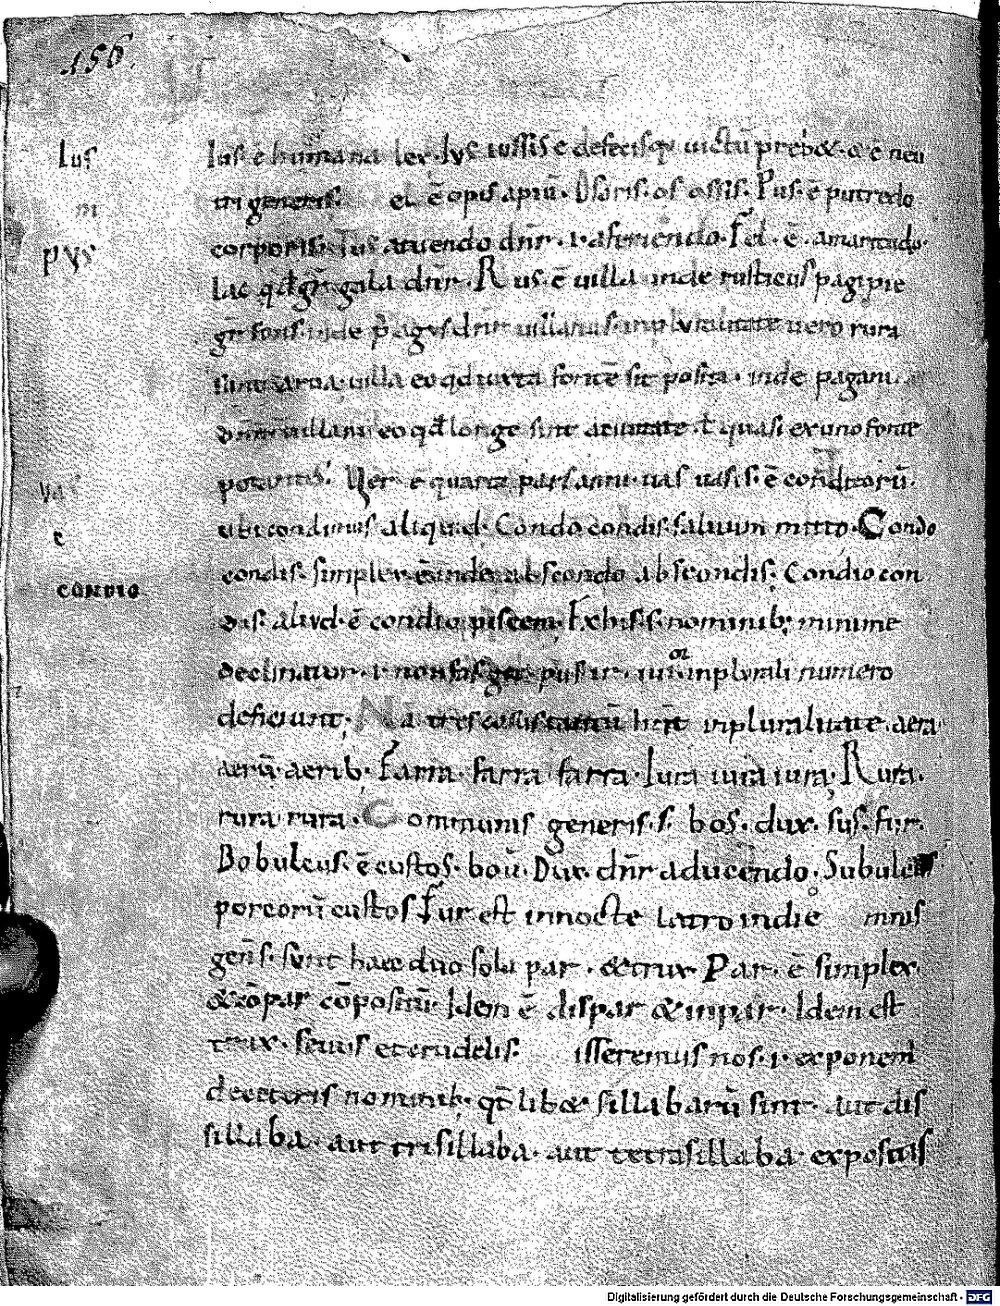 156.
Ius
pus
ius ē humana lex. Ius iussis e defectisq; uictū prebet. & ē neu
tri generis. el ē opis apiū. Os oris. os ossis. Pus. ē putredo
corporis. Ius atuendo dnr. ł aferiendo. Fel. ē. amaritudo.
Lac qđ gr gala dnr. Rus. ē uilla inde rusticus pagi pre
gr fons. inde pagus dnr uillanus. inpluralitate uero rura
sunt arua. uilla eo qđ iuxta fontē sit posita. inde pagani
dnr uillani eo qđ longe sint aciuitate. ł quasi exuno fonte
potantes. Ver ē quarta pars anni. uas uasis. ē conditoriū.
uas
ubi condimus aliquid. Condo condis. saluum mitto. Condo
e
condis. simplex ē inde abscondo abscondis. Condio con
condio
dis. aliud. ē condio piscem. Ex his. s. nominib; minime
declinatur. ł non fit gē pus ir. iur inplurali numero
defitiunt. Na tres casus tantū hnt inpluralitate. aera
aerū aerib. Farra. farra farra. Iura iura iura. Rura.
rura rura. Communis generis. s. bos. dux. sus. fur.
Bobulcus. ē custos. boū. Dux. dnr aducendo. Subulcus
porcorū custos Fur est innocte Latro indie mnis
gens. sunt haec duo sola par. & trux Par. ē simplex.
& cōpar cōpositū. Idem ē dispar & inpar. Idem est
trux. seuus et crudelis. isseremus nos. ł exponem
deceteris nominib. qt libæ sillabarū sint. aut dis
sillaba. aut trisillaba. aut tetrasillaba. expositis
Digitalisierung gefördert durch die Deutsche Forschungsgemeinschaft - DFG